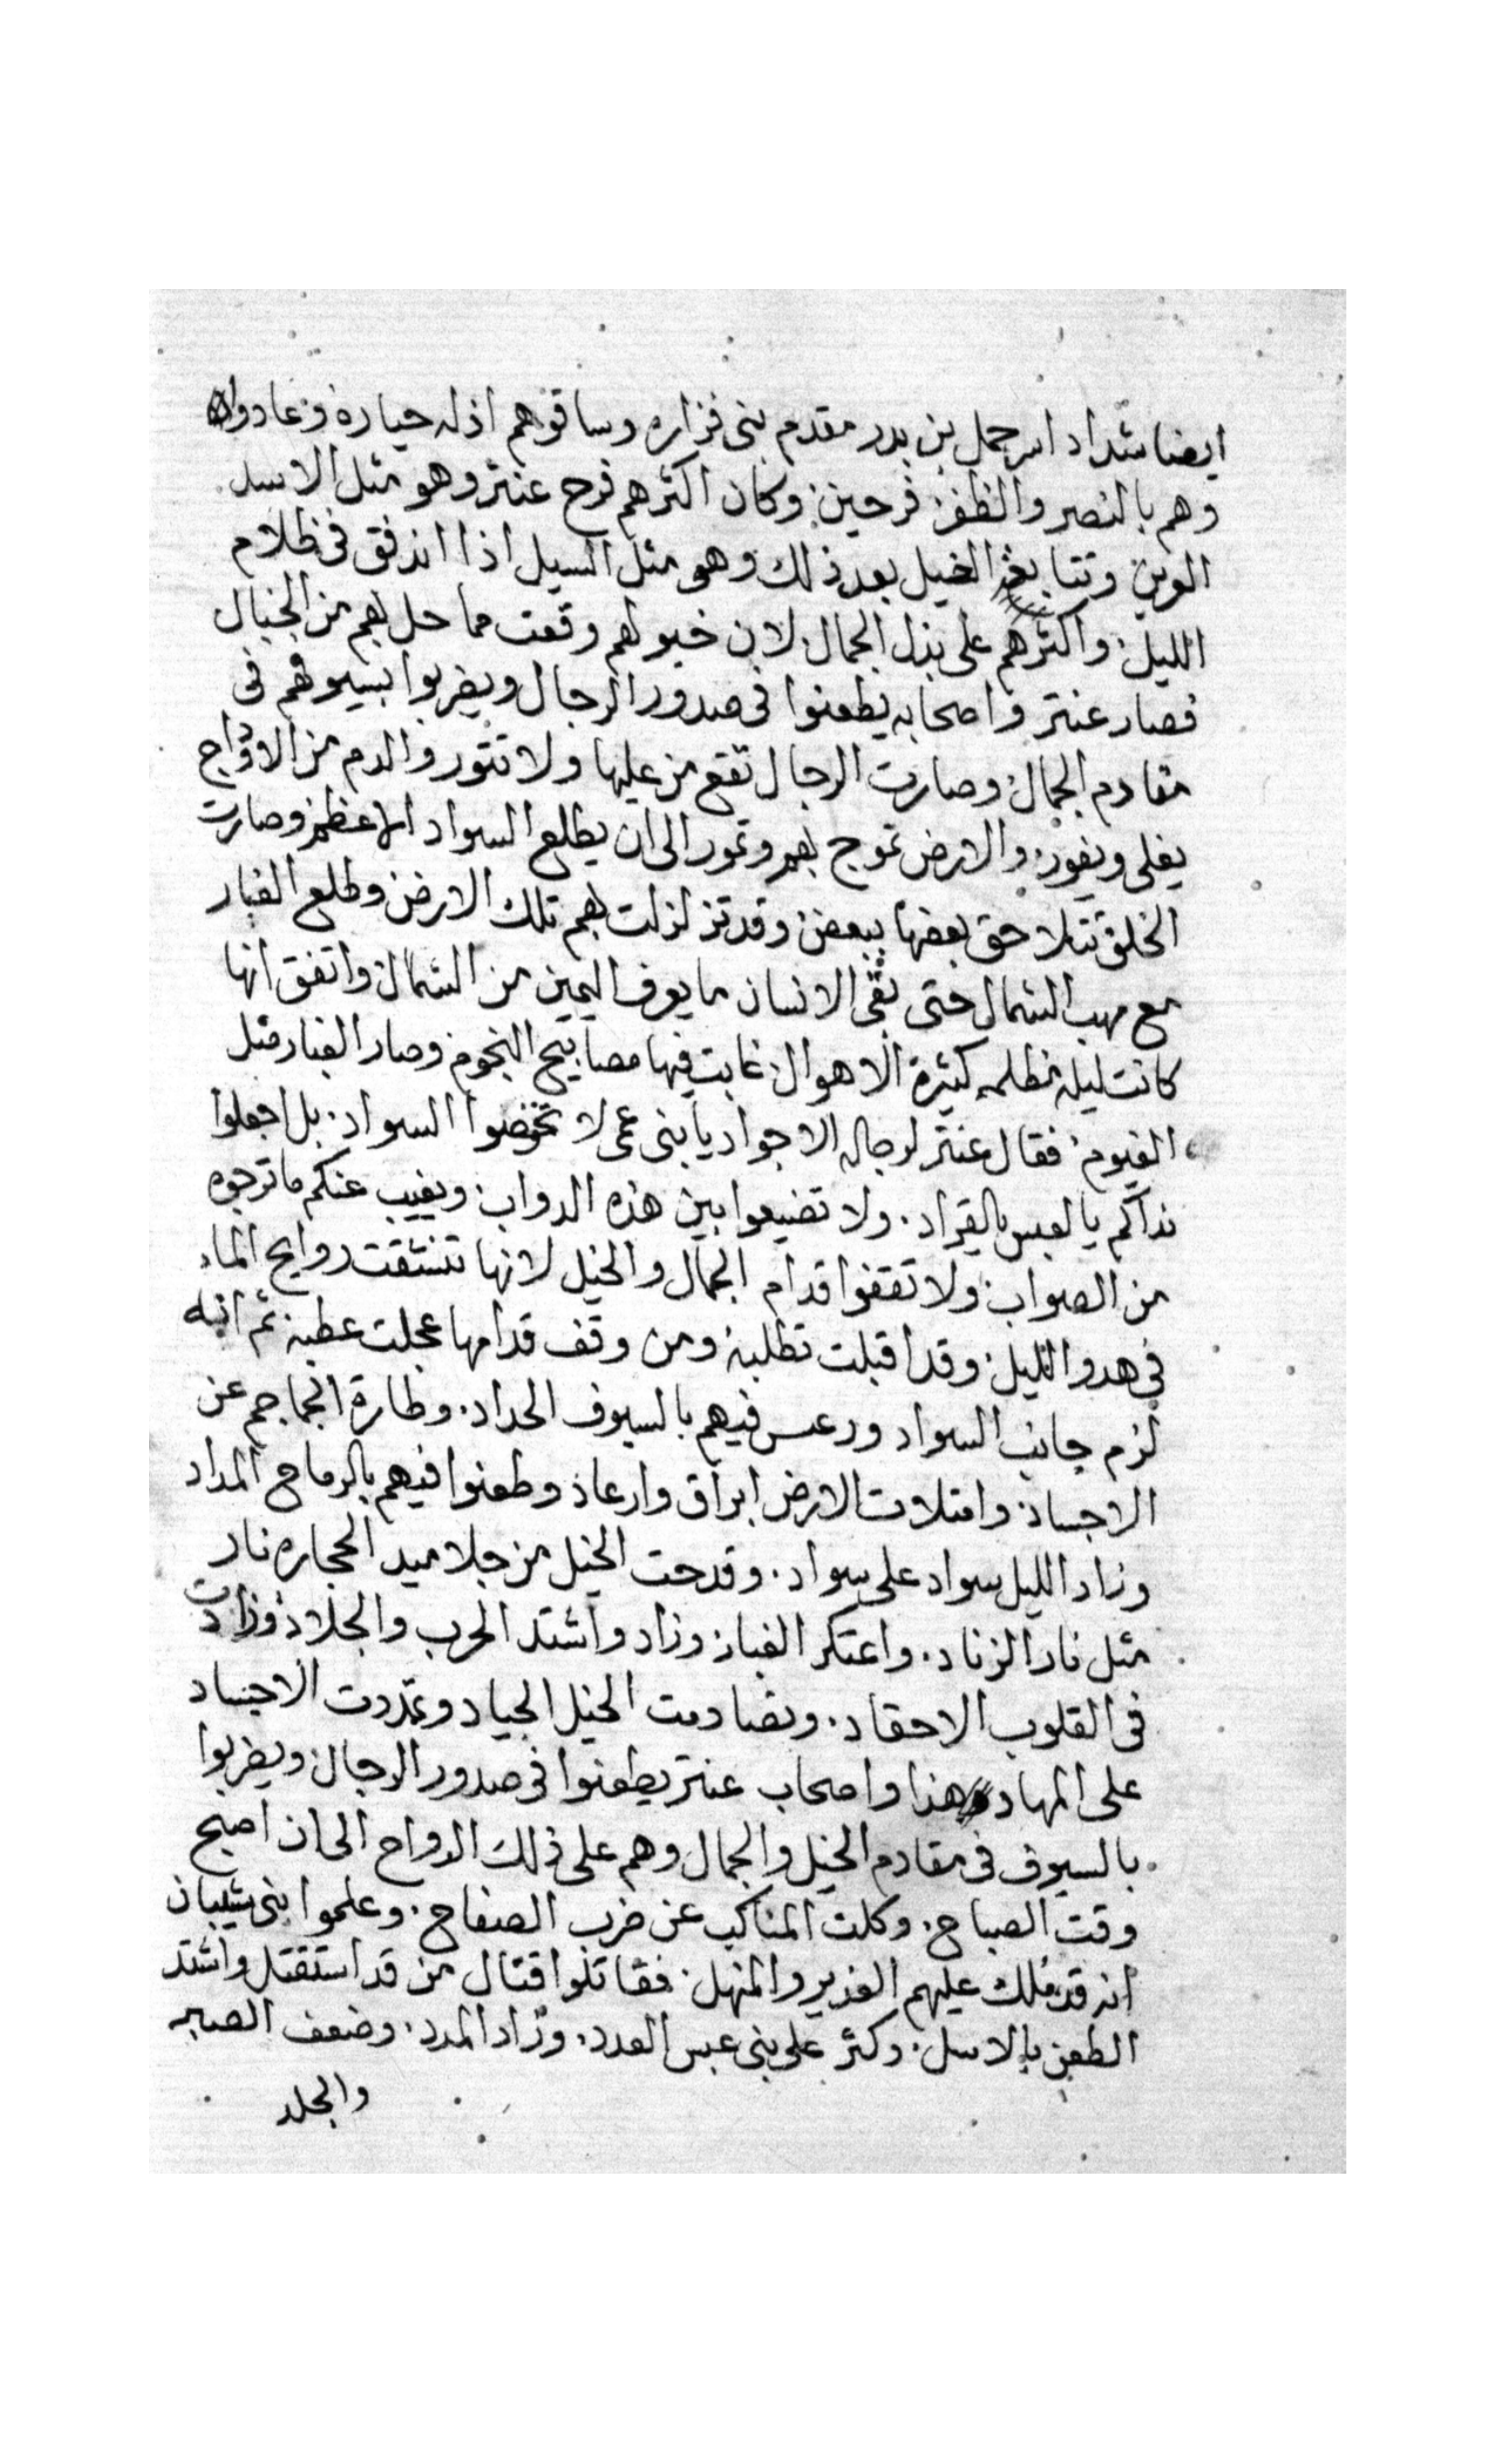 ايضا شداد اسر حمل بن بدر مقدم بنى فزاره وساقوهم اذله حياره وعادوا
وهم بالنصر والظفر فرحين وكان اكثرهم فرح عنتر وهو مثل الاسد
العرين وتتابعت الخيل بعد ذلك وهو مثل السيل اذا اندفق فى ظلام
الليل واكثرهم على بزل الجمال لان خيولهم وقعت مما حل بهم من الخبال
فصار عنتر واصحابه يطعنوا فى صدور الرجال ويضربوا بسيوفهم فى
مقادم الجمال وصارت الرجال تقع من عليها ولا تثور والدم من الاوداج
يغلى ويفور والارض تموج بهم وتمور الى ان يطلع السواد الاعظم وصارت
الخلق تتلاحق بعضها ببعض وقد تزلزلت بهم تلك الارض وطلع الغبار
مع مهب الشمال حتى بقى الانسان ما يعرف اليمين من الشمال واتفق انها
كانت ليله مظلمه كثيرة الاهوال غابت فيها مصابيح النجوم وصار الغبار مثل
الغيوم فقال عنتر لرجاله الاجواد يا بنى عمى لا تخوضوا السواد بل اجعلوا
نداكم يا لعبس يالقراد ولا تضيعوا بين هذه الدواب ويغيب عنكم ما ترجوه
من الصواب ولا تقفوا قدام الجمال والخيل لانها تنشقت روايح الماء
فى هدو الليل وقد اقبلت تطلبه ومن وقف قدامها عجلت عطبه ثم انه
لزم جانب السواد ودعس فيهم بالسيوف الحداد وطارة الجماجم عن
الاجساد وامتلات الارض ابراق وارعاد وطعنوا فيهم بالرماح المداد
وزاد الليل سواد على سواد وقدحت الخيل من جلاميد الحجاره نار
مثل نار الزناد واعتكر الغبار وزاد واشتد الحرب والجلاد وزادت
فى القلوب الاحقاد وتصادمت الخيل الجياد وتمددت الاجساد
على المهاد هذا واصحاب عنتر يطعنوا فى صدور الرجال ويضربوا
بالسيوف فى مقادم الخيل والجمال وهم على ذلك الرواح الى ان اصبح
وقت الصباح وكلت المناكب عن ضرب الصفاح وعلموا بنى شيبان
انه قد ملك عليهم الغدير والمنهل فقاتلوا قتال من قد استقتل واشتد
الطعن بالاسل وكثر على بنى عبس العدد وزاد المدد وضعف الصبر
والجلد